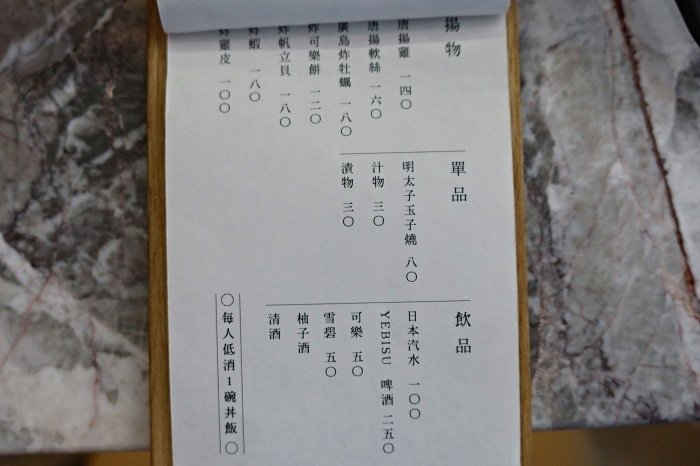 揚物
唐揚雞 一四〇
唐揚軟絲 一六〇
廣島炸牡蠣 一八〇
炸可樂餅 一二〇
炸帆立貝 一八〇
炸蝦 一八〇
炸雞皮 一〇〇
單品
明太子玉子燒 八〇
汁物 三〇
漬物 三〇
飲品
日本汽水 一〇〇
YEBISU 啤酒 二五〇
可樂 五〇
雪碧 五〇
柚子酒
清酒
〇每人低消1碗丼飯〇